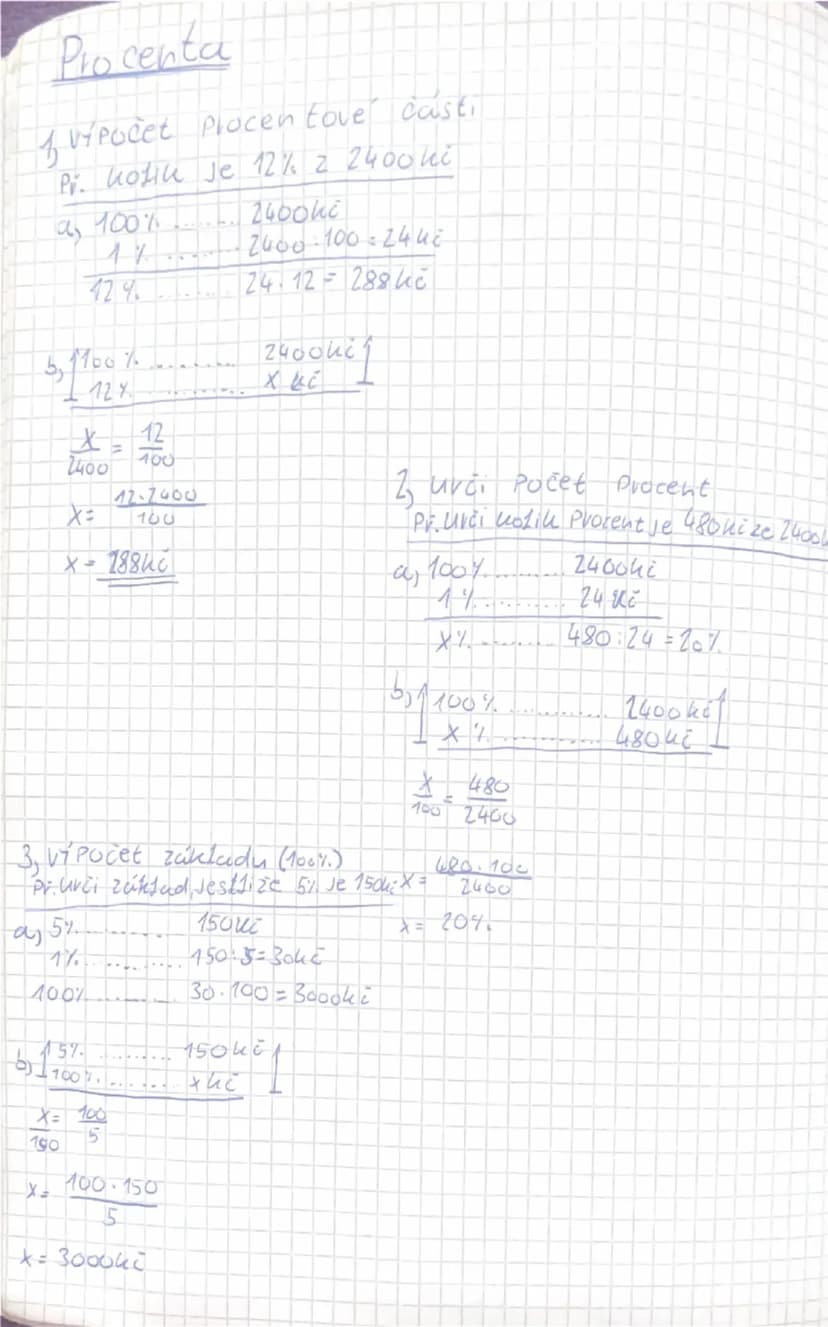 Procenta
1, výpočet procentové části
Př. kolik je 12% z 2400kč
a, 100% ........ 2400kč
1% ........ 2400:100=24kč
12% ........ 24·12=288kč
b, 100% ........... 2400kč
12% ........... x kč
x/2400 = 12/100
x= 12·2400/100
x=288kč
2, urči počet procent
Př. urči kolik procent je 480kč ze 2400k
a, 100% .......... 2400kč
1% .......... 24kč
x% .......... 480:24=20%
b, 100% ............ 2400kč
x% ............ 480kč
x/100 = 480/2400
x= 480·100/2400
x= 20%
3, výpočet základu (100%)
Př. urči základ, jestliže 5% je 150kč
a, 5% .......... 150kč
1% .......... 150:5=30kč
100% .......... 30·100=3000kč
b, 5% .......... 150kč
100% .......... xkč
x/150 = 100/5
x= 100·150/5
x= 3000kč